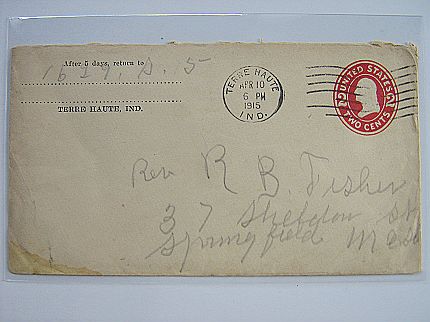 After 5 days, return to
TERRE HAUTE, IND.
TERRE HAUTE
APR 10
6 PM
1915
IND.
UNITED STATES
2 2
TWO CENTS
Rev R B. Fisher
37 Sheldon St
Springfield Mass